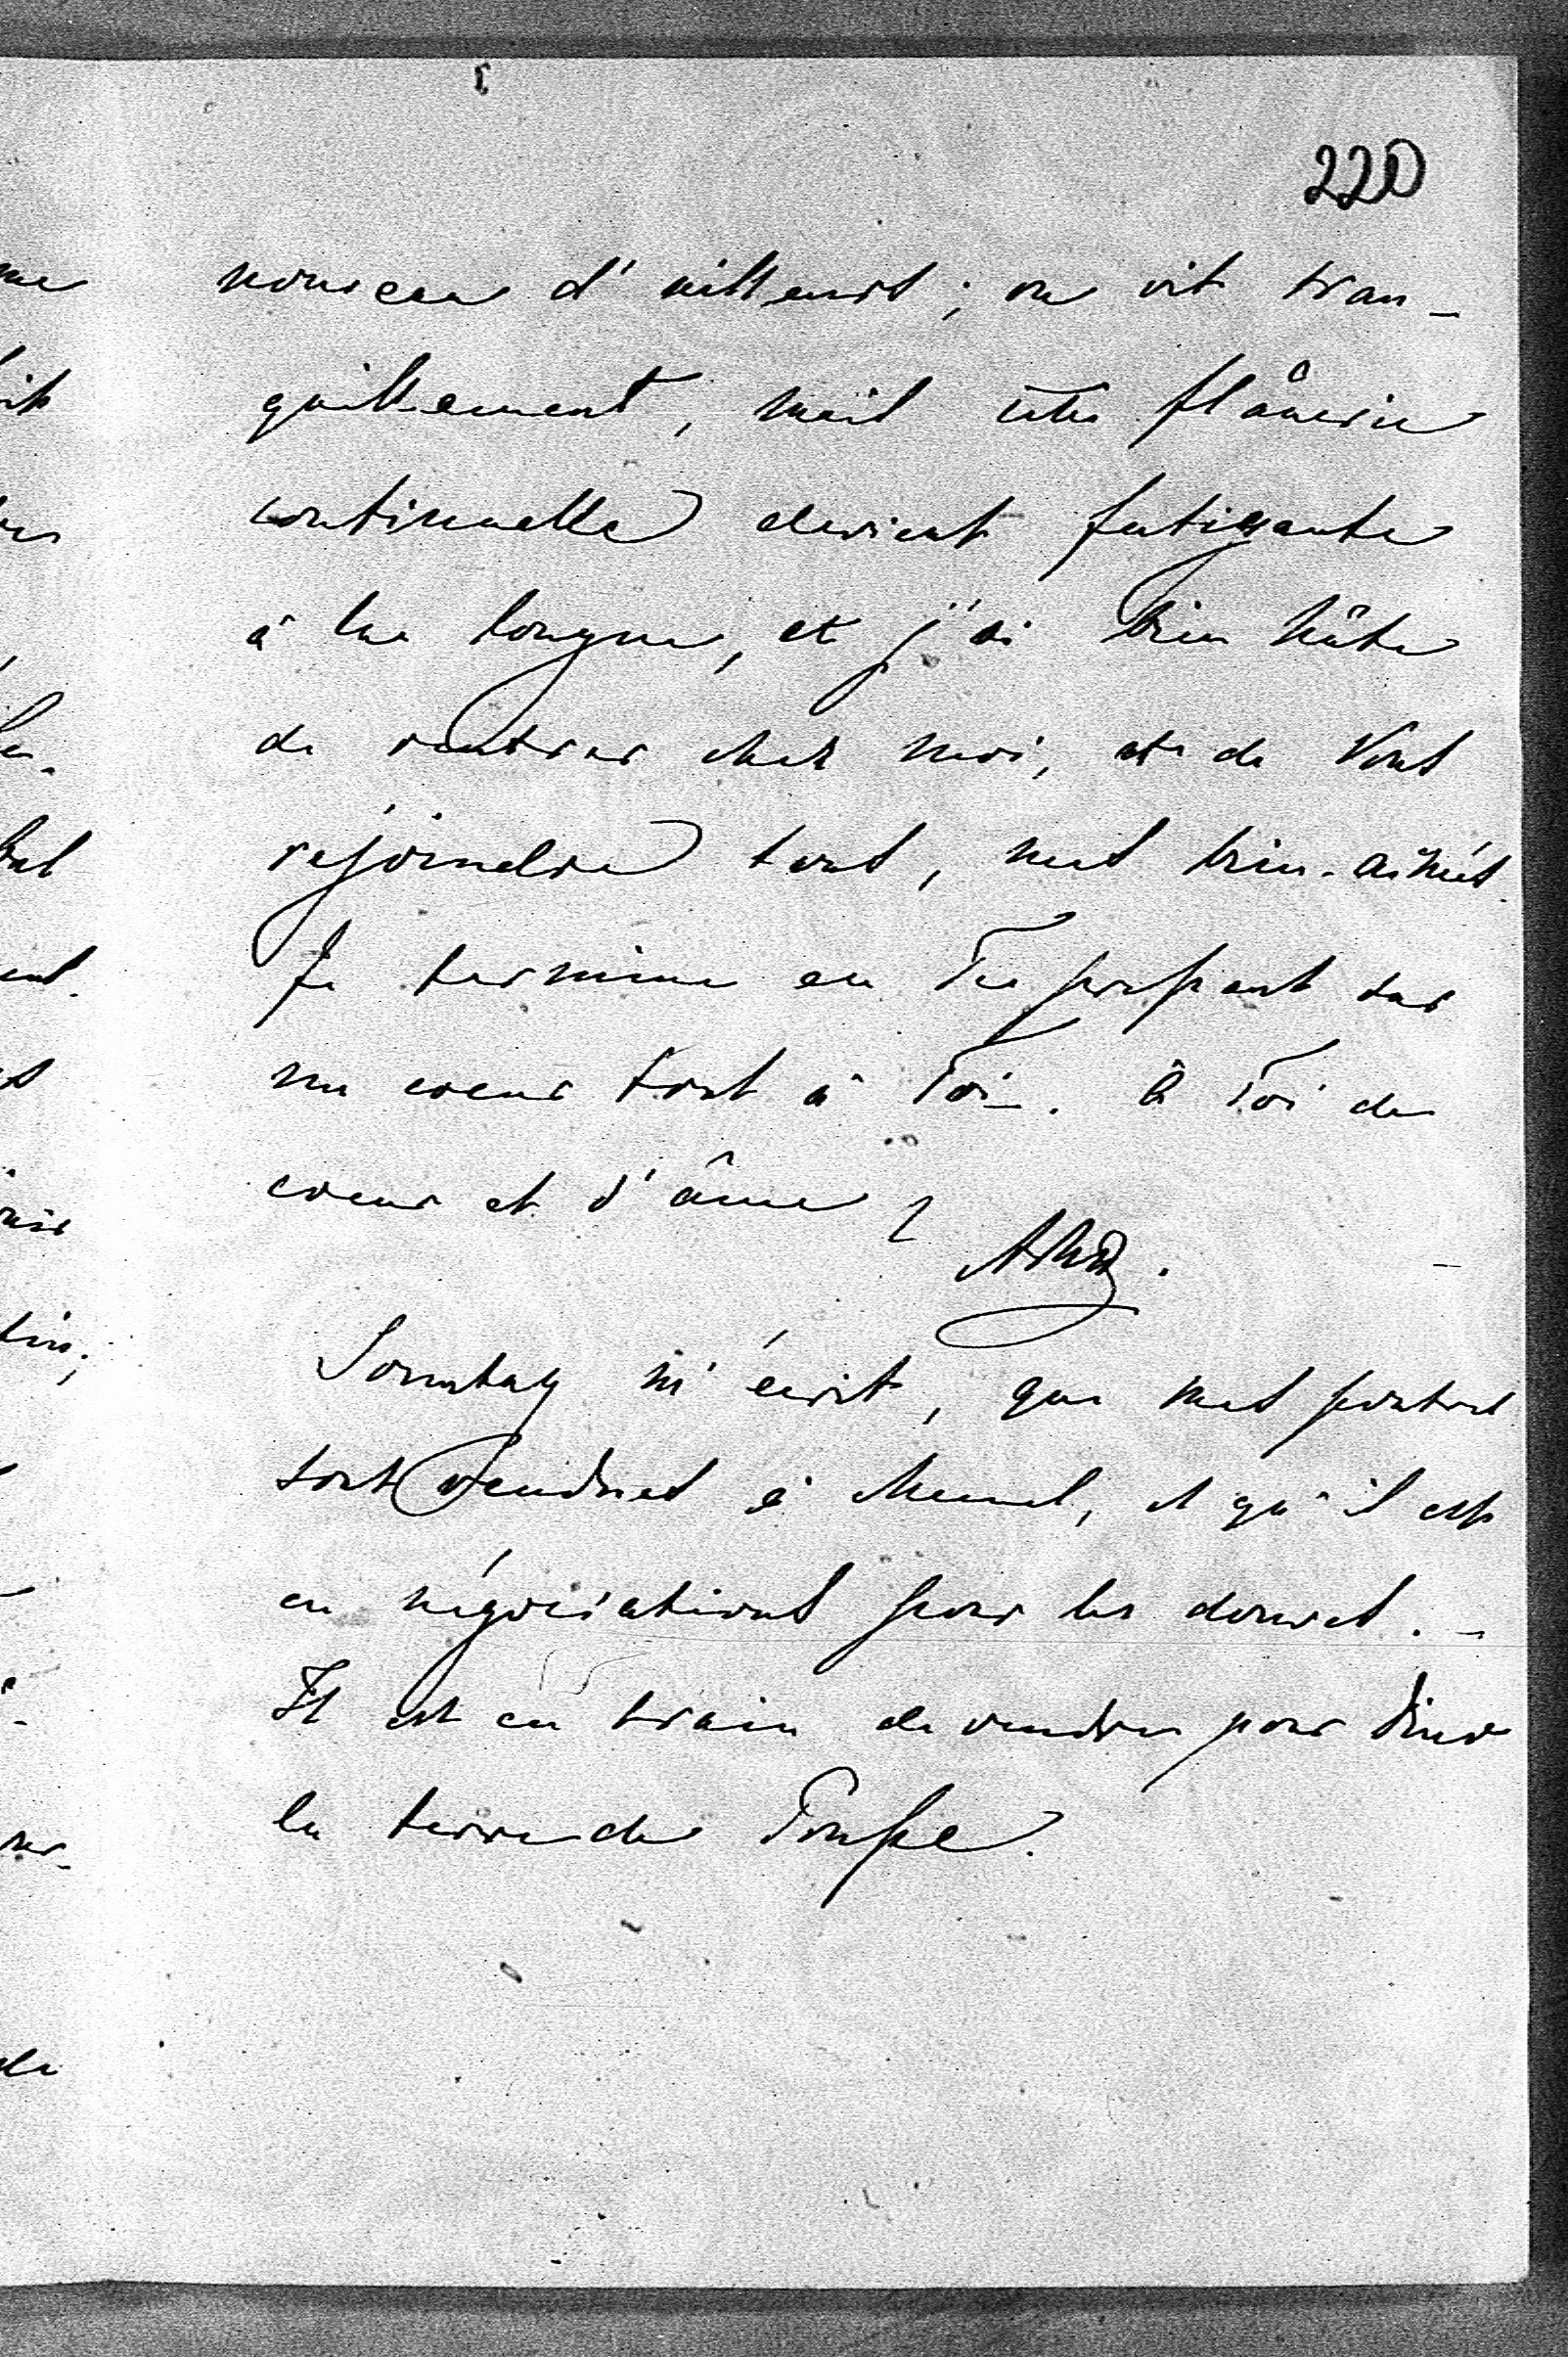 220
nouveau d'ailleurs; on vit tran-
quillement, mais cette flânerie
continuelle devient fatigante
à la longue, et j'ai bien hâte
de rentrer chez moi, et de Vous
rejoindre tous, mes bien-aimés.
Je termine en Te pressant sur
un coeur tout à Toi. à Toi de
coeur et d'âme
m'écrit, que mes poutres
sont vendues à Memel, et qu'il est
en négociations pour les douves.-
Il est en train de vendre pour
la terre de